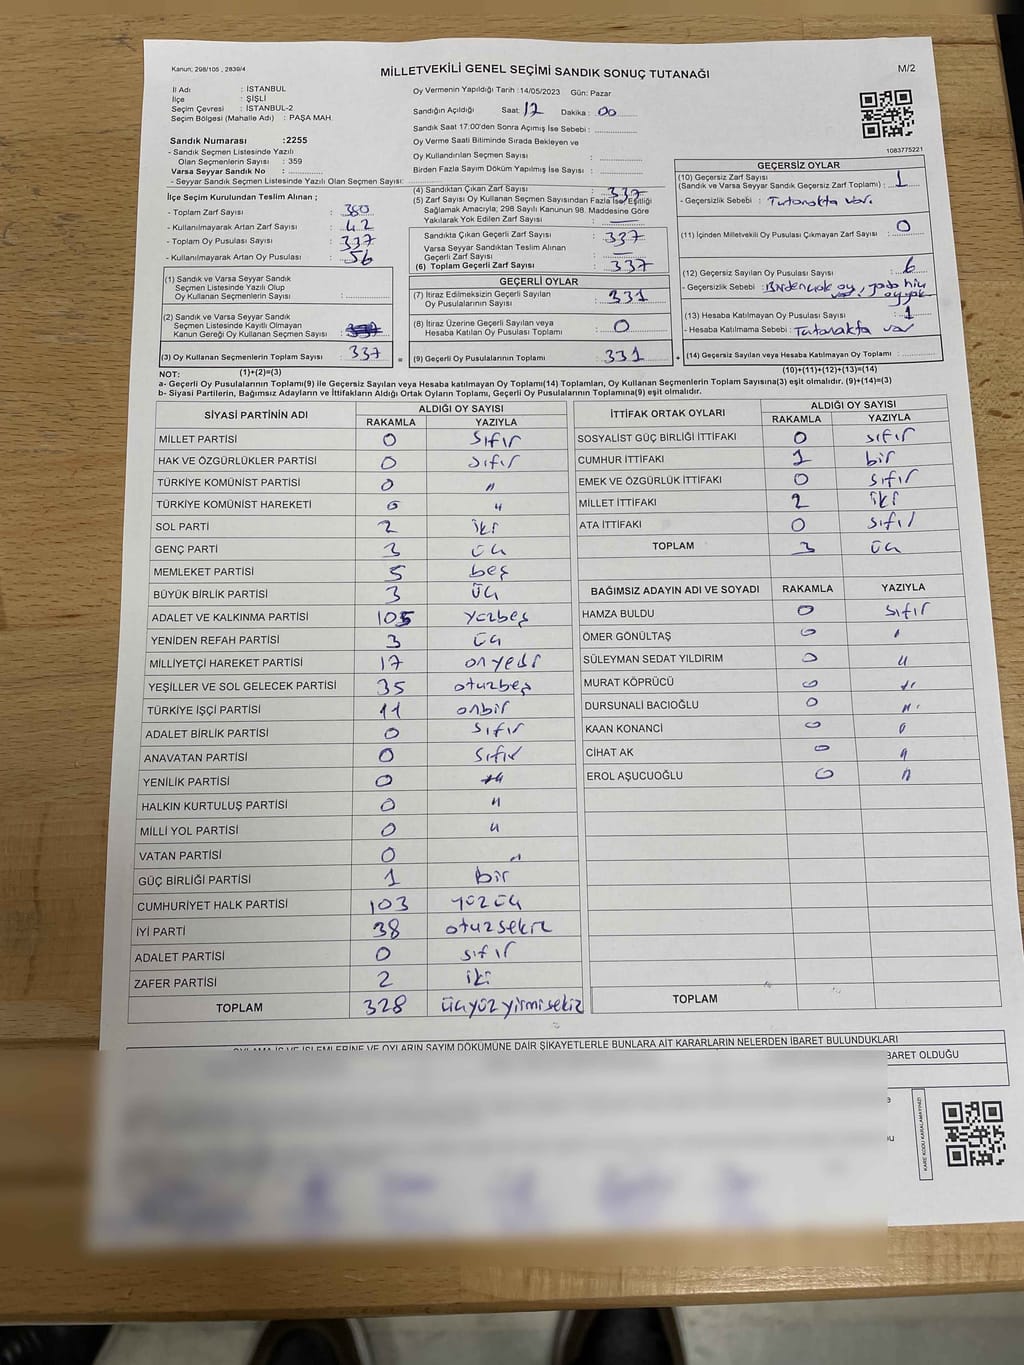 Kanun; 298/105 , 2839/4
MİLLETVEKİLİ GENEL SEÇİMİ SANDIK SONUÇ TUTANAĞI
M/2
İl Adı : İSTANBUL
İlçe : ŞİŞLİ
Seçim Çevresi : İSTANBUL-2
Seçim Bölgesi (Mahalle Adı) : PAŞA MAH.
Sandık Numarası :2255
- Sandık Seçmen Listesinde Yazılı
Olan Seçmenlerin Sayısı : 359
Varsa Seyyar Sandık No :
- Seyyar Sandık Seçmen Listesinde Yazılı Olan Seçmen Sayısı:
Oy Vermenin Yapıldığı Tarih :14/05/2023 Gün: Pazar
Sandığın Açıldığı Saat: 17 Dakika: 00
Sandık Saat 17:00'den Sonra Açımış İse Sebebi :
Oy Verme Saati Bitiminde Sırada Bekleyen ve
Oy Kullandırılan Seçmen Sayısı :
Birden Fazla Sayım Döküm Yapılmış İse Sayısı :
1083775221
İlçe Seçim Kurulundan Teslim Alınan ;
- Toplam Zarf Sayısı : 380
- Kullanılmayarak Artan Zarf Sayısı : 42
- Toplam Oy Pusulası Sayısı : 337
- Kullanılmayarak Artan Oy Pusulası : 56
(1) Sandık ve Varsa Seyyar Sandık
Seçmen Listesinde Yazılı Olup
Oy Kullanan Seçmenlerin Sayısı :
(2) Sandık ve Varsa Seyyar Sandık
Seçmen Listesinde Kayıtlı Olmayan
Kanun Gereği Oy Kullanan Seçmen Sayısı :
(3) Oy Kullanan Seçmenlerin Toplam Sayısı : 337 =
(4) Sandıktan Çıkan Zarf Sayısı : 337
(5) Zarf Sayısı Oy Kullanan Seçmen Sayısından Fazla İse, Eşitliği
Sağlamak Amacıyla; 298 Sayılı Kanunun 98. Maddesine Göre
Yakılarak Yok Edilen Zarf Sayısı :
Sandıkta Çıkan Geçerli Zarf Sayısı : 337
Varsa Seyyar Sandıktan Teslim Alınan
Geçerli Zarf Sayısı :
(6) Toplam Geçerli Zarf Sayısı : 337
GEÇERLİ OYLAR
(7) İtiraz Edilmeksizin Geçerli Sayılan
Oy Pusulalarının Sayısı : 331
(8) İtiraz Üzerine Geçerli Sayılan veya
Hesaba Katılan Oy Pusulası Toplamı : 0
(9) Geçerli Oy Pusulalarının Toplamı : 331 +
GEÇERSİZ OYLAR
(10) Geçersiz Zarf Sayısı
(Sandık ve Varsa Seyyar Sandık Geçersiz Zarf Toplamı) : 1
- Geçersizlik Sebebi : Tutanakta var.
(11) İçinden Milletvekili Oy Pusulası Çıkmayan Zarf Sayısı : 0
(12) Geçersiz Sayılan Oy Pusulası Sayısı : 6
- Geçersizlik Sebebi : Birden çok oy, yada hiç
oy yok
(13) Hesaba Katılmayan Oy Pusulası Sayısı : 1
- Hesaba Katılmama Sebebi : Tutanakta var
(14) Geçersiz Sayılan veya Hesaba Katılmayan Oy Toplamı :
NOT: (1)+(2)=(3) (10)+(11)+(12)+(13)=(14)
a- Geçerli Oy Pusulalarının Toplamı(9) ile Geçersiz Sayılan veya Hesaba katılmayan Oy Toplamı(14) Toplamları, Oy Kullanan Seçmenlerin Toplam Sayısına(3) eşit olmalıdır. (9)+(14)=(3)
b- Siyasi Partilerin, Bağımsız Adayların ve İttifakların Aldığı Ortak Oyların Toplamı, Geçerli Oy Pusulalarının Toplamına(9) eşit olmalıdır.
SİYASİ PARTİNİN ADI ALDIĞI OY SAYISI
RAKAMLA YAZIYLA
MİLLET PARTİSİ 0 sıfır
HAK VE ÖZGÜRLÜKLER PARTİSİ 0 sıfır
TÜRKİYE KOMÜNİST PARTİSİ 0 "
TÜRKİYE KOMÜNİST HAREKETİ 0 "
SOL PARTİ 2 iki
GENÇ PARTİ 3 üç
MEMLEKET PARTİSİ 5 beş
BÜYÜK BİRLİK PARTİSİ 3 üç
ADALET VE KALKINMA PARTİSİ 105 yüzbeş
YENİDEN REFAH PARTİSİ 3 üç
MİLLİYETÇİ HAREKET PARTİSİ 17 onyedi
YEŞİLLER VE SOL GELECEK PARTİSİ 35 otuzbeş
TÜRKİYE İŞÇİ PARTİSİ 11 onbir
ADALET BİRLİK PARTİSİ 0 sıfır
ANAVATAN PARTİSİ 0 sıfır
YENİLİK PARTİSİ 0 "
HALKIN KURTULUŞ PARTİSİ 0 "
MİLLİ YOL PARTİSİ 0 "
VATAN PARTİSİ 0 "
GÜÇ BİRLİĞİ PARTİSİ 1 bir
CUMHURİYET HALK PARTİSİ 103 yüzüç
İYİ PARTİ 38 otuzsekiz
ADALET PARTİSİ 0 sıfır
ZAFER PARTİSİ 2 iki
TOPLAM 328 üçyüzyirmisekiz
İTTİFAK ORTAK OYLARI ALDIĞI OY SAYISI
RAKAMLA YAZIYLA
SOSYALİST GÜÇ BİRLİĞİ İTTİFAKI 0 sıfır
CUMHUR İTTİFAKI 1 bir
EMEK VE ÖZGÜRLÜK İTTİFAKI 0 sıfır
MİLLET İTTİFAKI 2 iki
ATA İTTİFAKI 0 sıfır
TOPLAM 3 üç
BAĞIMSIZ ADAYIN ADI VE SOYADI RAKAMLA YAZIYLA
HAMZA BULDU 0 sıfır
ÖMER GÖNÜLTAŞ 0 "
SÜLEYMAN SEDAT YILDIRIM 0 "
MURAT KÖPRÜCÜ 0 "
DURSUNALİ BACIOĞLU 0 "
KAAN KONANCİ 0 "
CİHAT AK 0 "
EROL AŞUCUOĞLU 0 "
TOPLAM
OYLAMA İŞ VE İŞLEMLERİNE VE OYLARIN SAYIM DÖKÜMÜNE DAİR ŞİKAYETLERLE BUNLARA AİT KARARLARIN NELERDEN İBARET BULUNDUKLARI
BARET OLDUĞU
KARE KODU KARALAMAYINIZ!